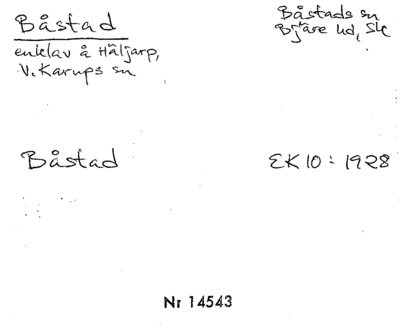 Båstad
enklav å Häljarp,
V. Karups sn
Båstads sn
Bjäre hd, Sk
Båstad
EK 10 : 1928
Nr 14543